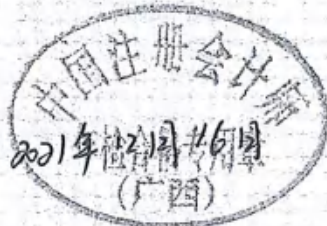 中国注册会计师
2021年12月16日
(广西)